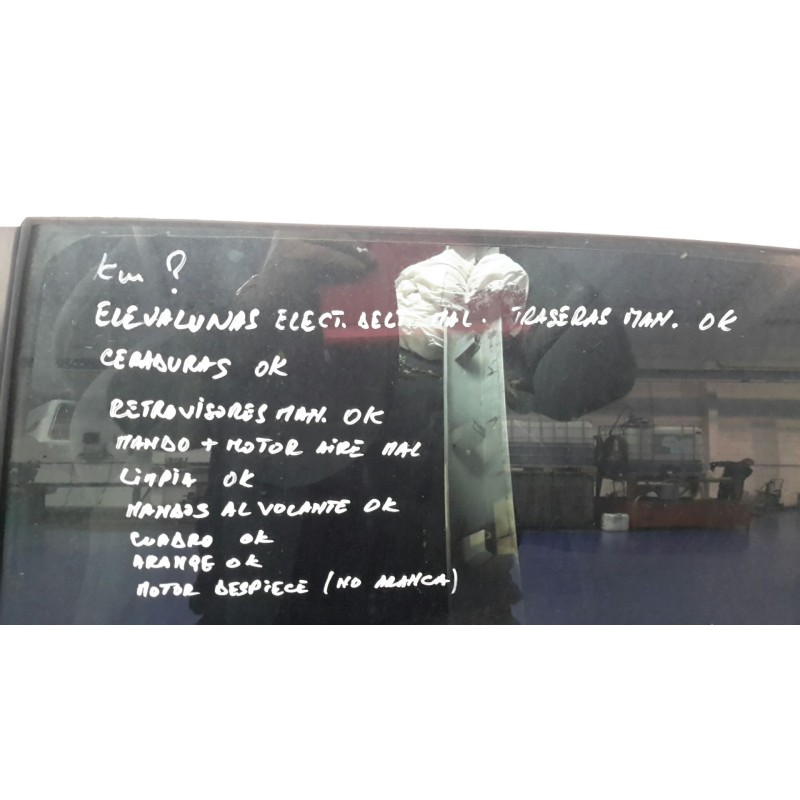 Km ?
ELEVALUNAS ELECT. DELT. MAL. TRASERAS MAN. OK
CERADURAS OK
RETROVISORES MAN. OK
MANDO + MOTOR AIRE MAL
LIMPIA OK
MANDOS AL VOLANTE OK
CUADRO OK
ARANQE OK
MOTOR DESPIECE (NO ARANCA)